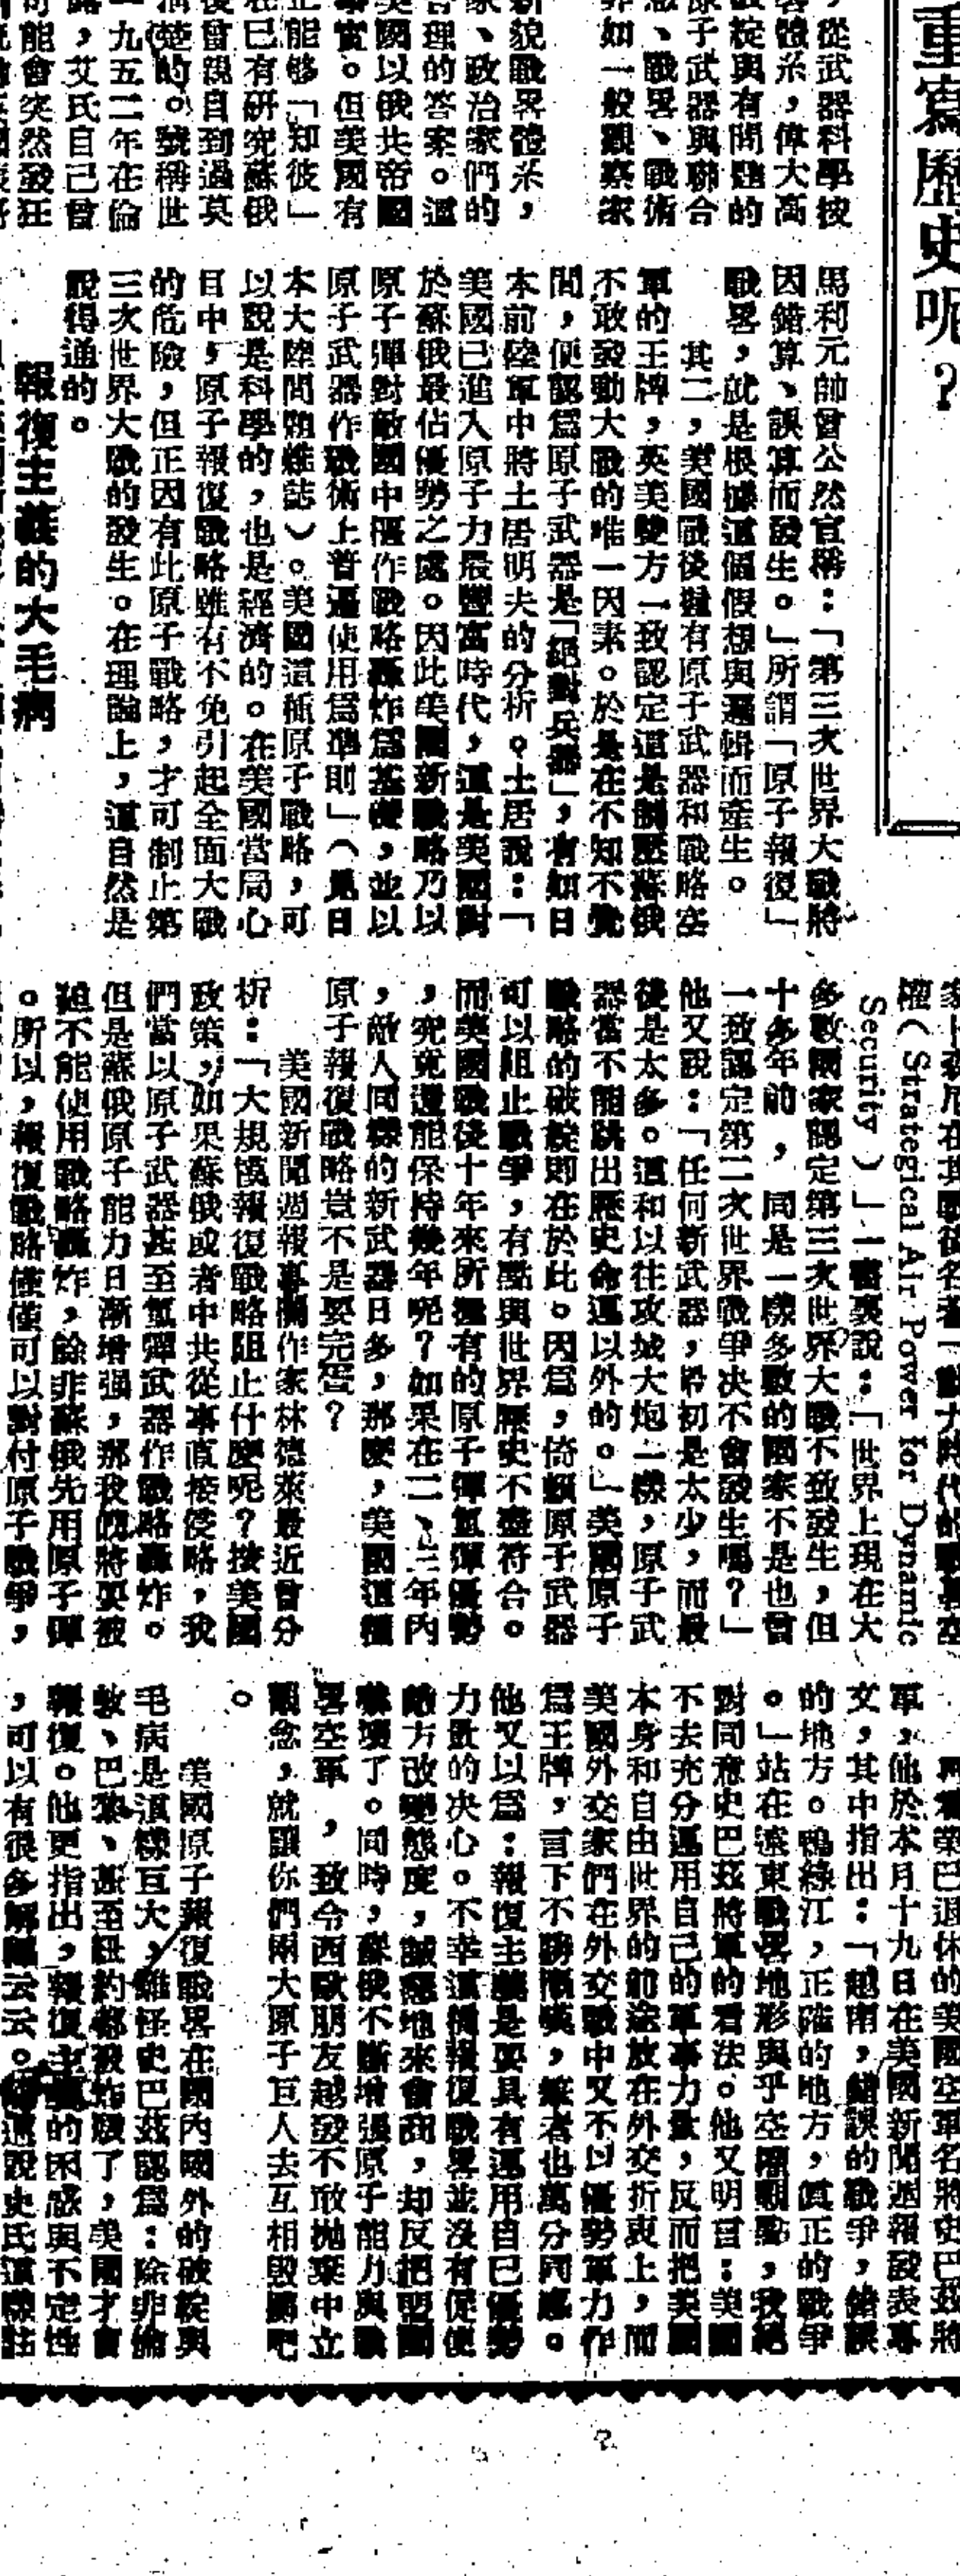 重寫歷史呢？
，從武器科學按
體系，偉大高
綻與有問題的
原子武器與聯合
、戰畧、戰術
非如一般觀察家
新貌戰畧體系，
家、政治家們的
合理的答案。這
美國以俄共帝國
事實。但美國有
正能够「知彼」
在已有研究蘇俄
後曾親自到過莫
清楚的。號稱世
一九五二年在倫
路，艾氏自己曾
可能會突然發狂
馬利元帥曾公然宣稱：「第三次世界大戰將
因錯算、誤算而發生。」所謂「原子報復」
戰畧，就是根據這個假想與邏輯而產生。
其二，美國戰後擁有原子武器和戰略空
軍的王牌，英美雙方一致認定這是制壓蘇俄
不敢發動大戰的唯一因素。於是在不知不覺
間，便認爲原子武器是「絕對兵器」，有如日
本前陸軍中將土居明夫的分析。土居說：「
美國已進入原子力最豐富時代，這是美國對
於蘇俄最佔優勢之處。因此美國新戰略乃以
原子彈對敵國中樞作戰略轟炸爲基礎，並以
原子武器作戰術上普遍使用爲準則」（見日
本大陸問題雜誌）。美國這種原子戰略，可
以說是科學的，也是經濟的。在美國當局心
目中，原子報復戰略雖有不免引起全面大戰
的危險，但正因有此原子戰略，才可制止第
三次世界大戰的發生。在理論上，這自然是
說得通的。
報復主義的大毛病
權（Strategical Air Power for Dynamic
Security）」一書裏說：「世界上現在大
多數國家認定第三次世界大戰不致發生，但
十多年前，同是一樣多數的國家不是也曾
一致認定第二次世界戰爭決不會發生嗎？」
他又說：「任何新武器，當初是太少，而最
後是太多。這和以往攻城大炮一樣，原子武
器當不能跳出歷史命運以外的。」美國原子
戰略的破綻則在於此。因爲，倚賴原子武器
可以阻止戰爭，有點與世界歷史不盡符合。
而美國戰後十年來所擁有的原子彈氫彈優勢
，究竟還能保持幾年呢？如果在二、三年內
，敵人同樣的新武器日多，那麽，美國這種
原子報復戰略豈不是要完蛋？
美國新聞週報專欄作家林德萊最近曾分
析：「大規模報復戰略阻止什麽呢？按美國
政策，如果蘇俄或者中共從事直接侵略，我
們當以原子武器甚至氫彈武器作戰略轟炸。
但是蘇俄原子能力日漸增强，那我們將要被
迫不能使用戰略轟炸，餘非蘇俄先用原子彈
。所以，報復戰略僅僅可以對付原子戰爭，
榮已退休的美國空軍名將史巴茲將
軍，他於本月十九日在美國新聞週報發表專
文，其中指出：「越南，錯誤的戰爭，錯誤
的地方。鴨綠江，正確的地方，眞正的戰爭
。」站在遠東戰畧地形與乎空權觀點，我絕
對同意史巴茲將軍的看法。他又明言：美國
不去充分運用自己的軍事力量，反而把美國
本身和自由世界的前途放在外交折衷上，而
美國外交家們在外交戰中又不以優勢軍力作
爲王牌，言下不勝慨嘆，筆者也萬分同感。
他又以爲：報復主義是要具有運用自己優勢
力量的决心。不幸這個報復戰畧並沒有促使
敵方改變態度，誠懇地來會商，却反把盟國
嚇壞了。同時，蘇俄不斷增强原子能力與戰
畧空軍，致令西歐朋友越發不敢拋棄中立
觀念，就讓你們兩大原子巨人去互相毀滅吧
。
美國原子報復戰畧在國內國外的破綻與
毛病是這樣巨大，難怪史巴茲認爲：除非倫
敦、巴黎、甚至紐約都被炸燬了，美國才會
報復。他更指出，報復主義的困惑與不定性
，可以有很多解釋云云。